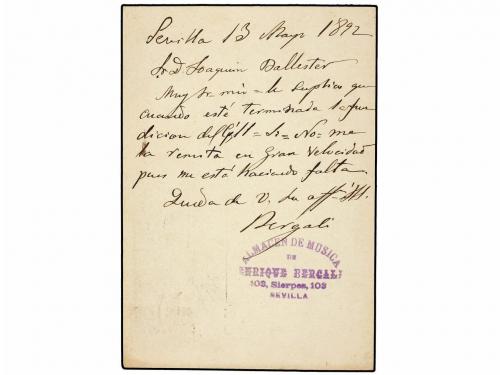 Sevilla 13 Mayo 1892
Sr. D. Joaquin Ballester
Muy Sr. mio = le suplico que
cuando esté terminada la fun
dicion del
la remita en gran velocidad
pues me está haciendo falta.
Queda de V. su aff
Bergali
ALMACEN DE MUSICA
DE
ENRIQUE BERGALI
103, Sierpes, 103
SEVILLA